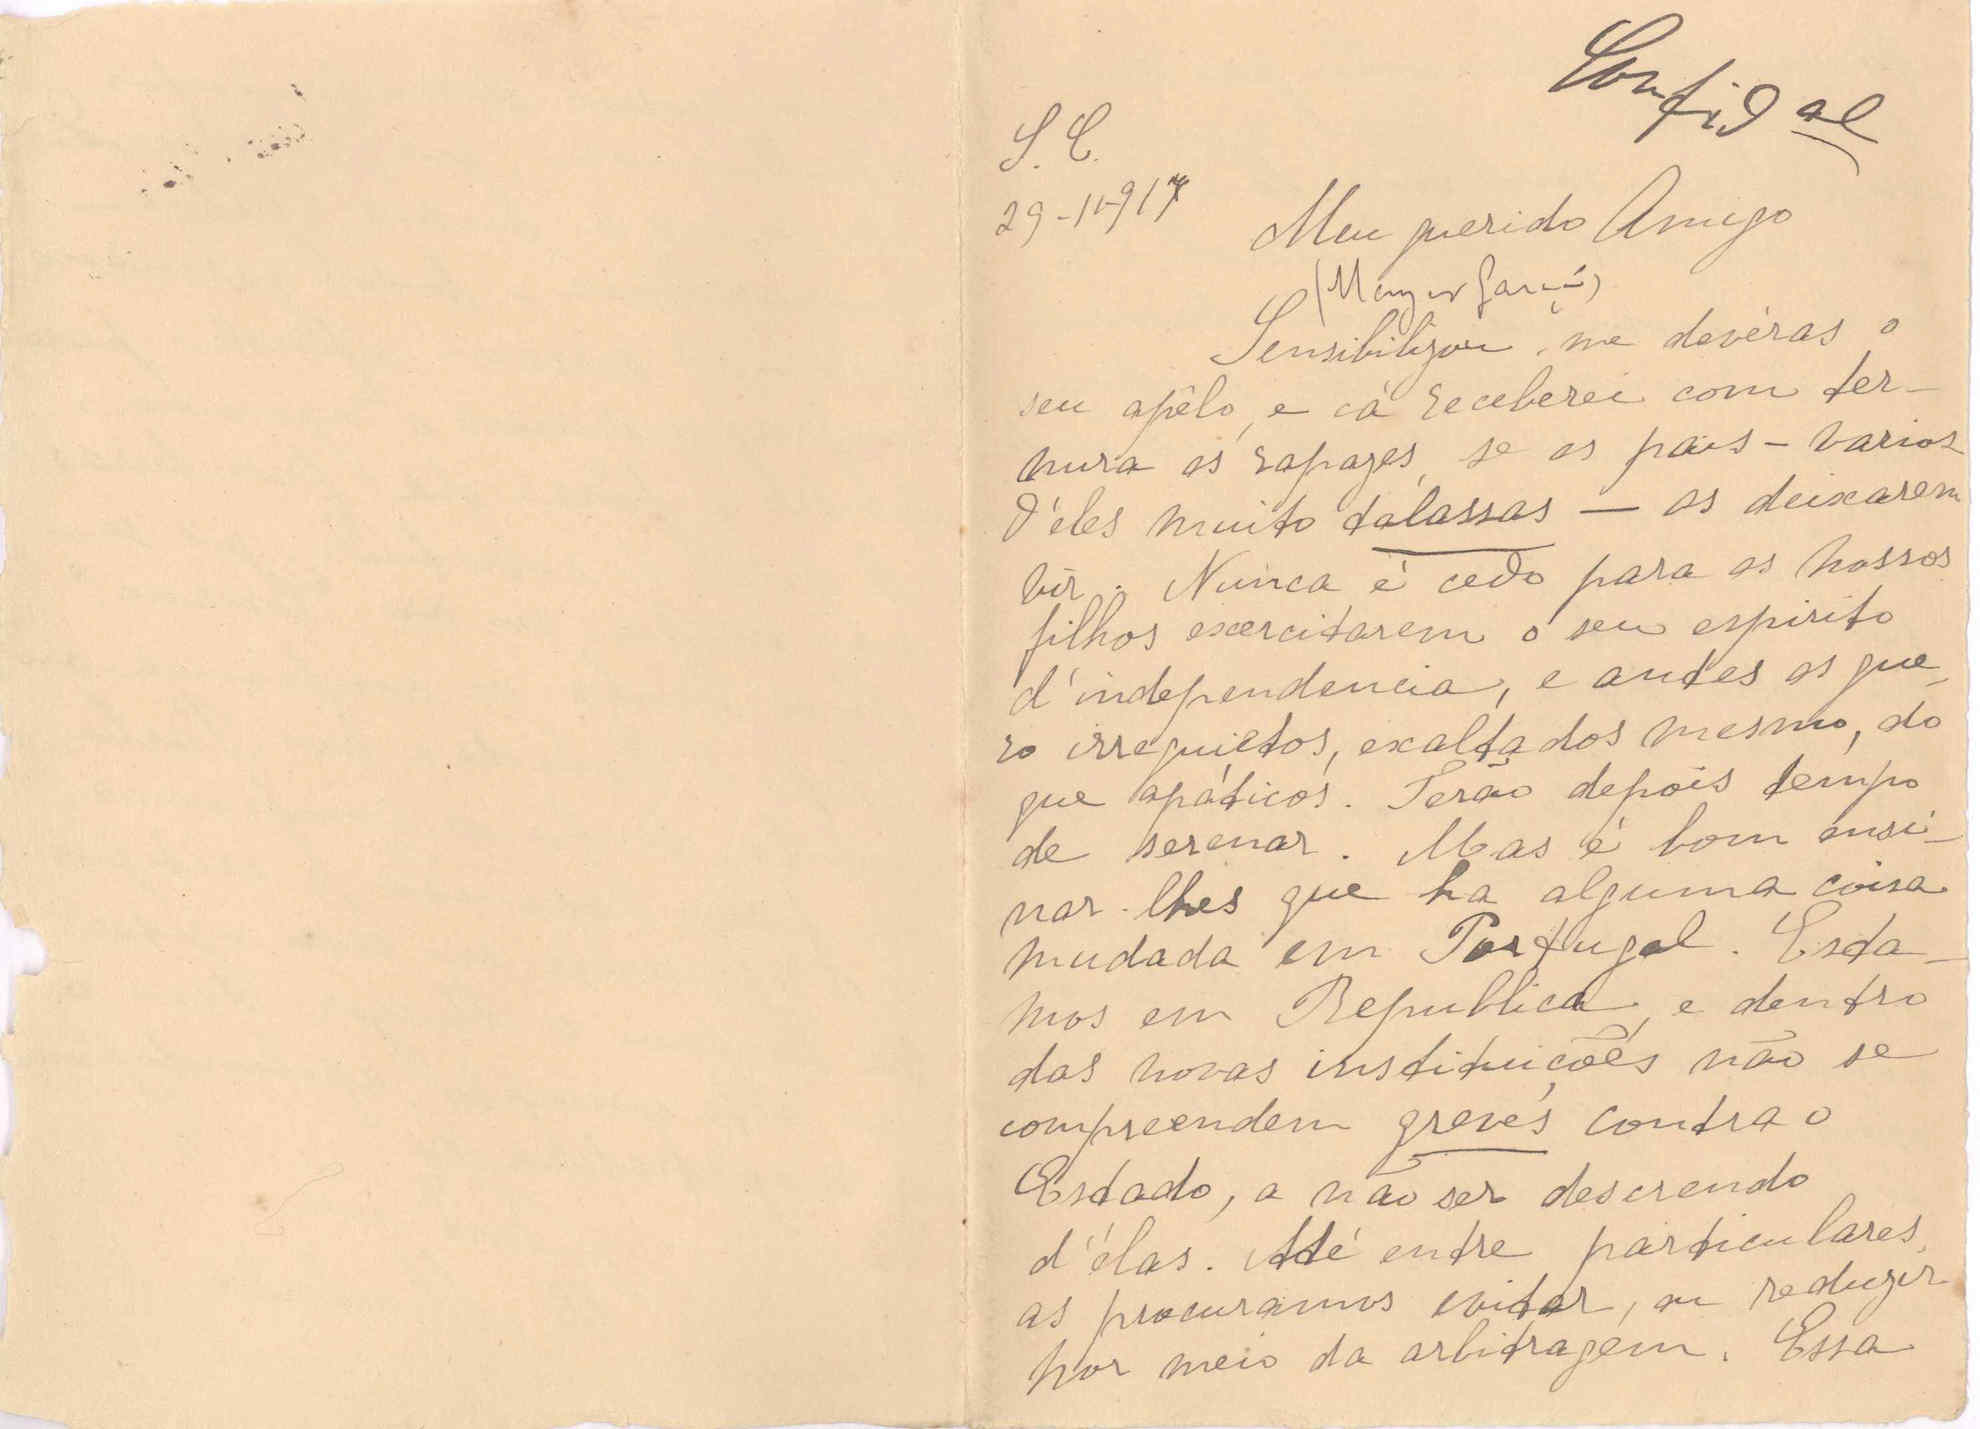 Confidal
S. C.
29-11-917
Meu querido Amigo
Sensibilizou-me devéras o
seu apêlo, e cá receberei com ter-
nura os rapazes, se os paes - varios
d'éles muito talassas - os deixarem
vir. Nunca é cedo para os nossos
filhos exercitarem o seu espirito
d'independencia, e antes os que-
ro irrequietos, exaltados mesmo, do
que apáticos. Terão depois tempo
de serenar. Mas é bom ensi-
nar-lhes que ha alguma coisa
mudada em Portugal. Esta-
mos em Republica, e dentro
das novas instituições não se
compreendem gréves contra o
Estado, a não ser descrendo
d'élas. Até entre particulares,
as procuramos evitar, ou reduzir
por meio da arbitragem. Essa